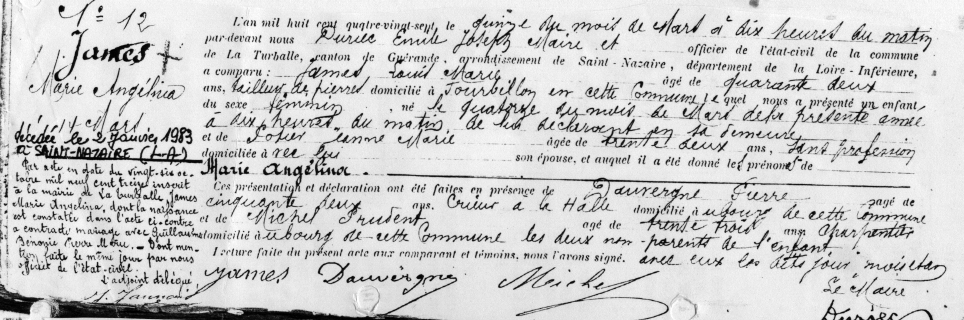 N° 12
James
Marie Angélina
14 Mars
décédée le 2 Janvier 1983
à SAINT-NAZAIRE (L-A)
Par acte en date du vingt-six oc-
tobre mil neuf cent treize inscrit
à la mairie de La Turballe, James
Marie Angelina, dont la naissance
est constatée dans l'acte ci-contre
a contracté mariage avec Guillaume
Pierre Marie. - Dont men-
tion faite le même jour par nous
officier de l'état-civil.
L'adjoint délégué
L'an mil huit cent quatre-vingt-sept, le quinze du mois de Mars à dix heures du matin
par-devant nous Duriec Emile Joseph Maire et officier de l'état-civil de la commune
de La Turballe, canton de Guérande, arrondissement de Saint-Nazaire, département de la Loire-Inférieure,
a comparu : James, Louis Marie âgé de quarante deux
ans, tailleur de pierres domicilié à en cette Commune lequel nous a présenté un enfant
du sexe féminin, né le quatorze du mois de Mars de la présente année
à dix heures du matin de lui déclarant en sa demeure
et de Marie âgée de trente deux ans, sans profession
domiciliée avec lui son épouse, et auquel il a été donné les prénoms de
Marie Angélina.
Ces présentation et déclaration ont été faites en présence de Dauvergne Pierre âgé de
cinquante deux ans. Crieur à la Halle domicilié au bourg de cette Commune
et de Michel Prudent, âgé de trente trois ans Charpentier
domicilié au bourg de cette Commune les deux non-parents de l'enfant
Lecture faite du présent acte aux comparant et témoins, nous l'avons signé. avec eux les dits jour, mois et an
Le Maire
James Dauvergne Michel
Duriec